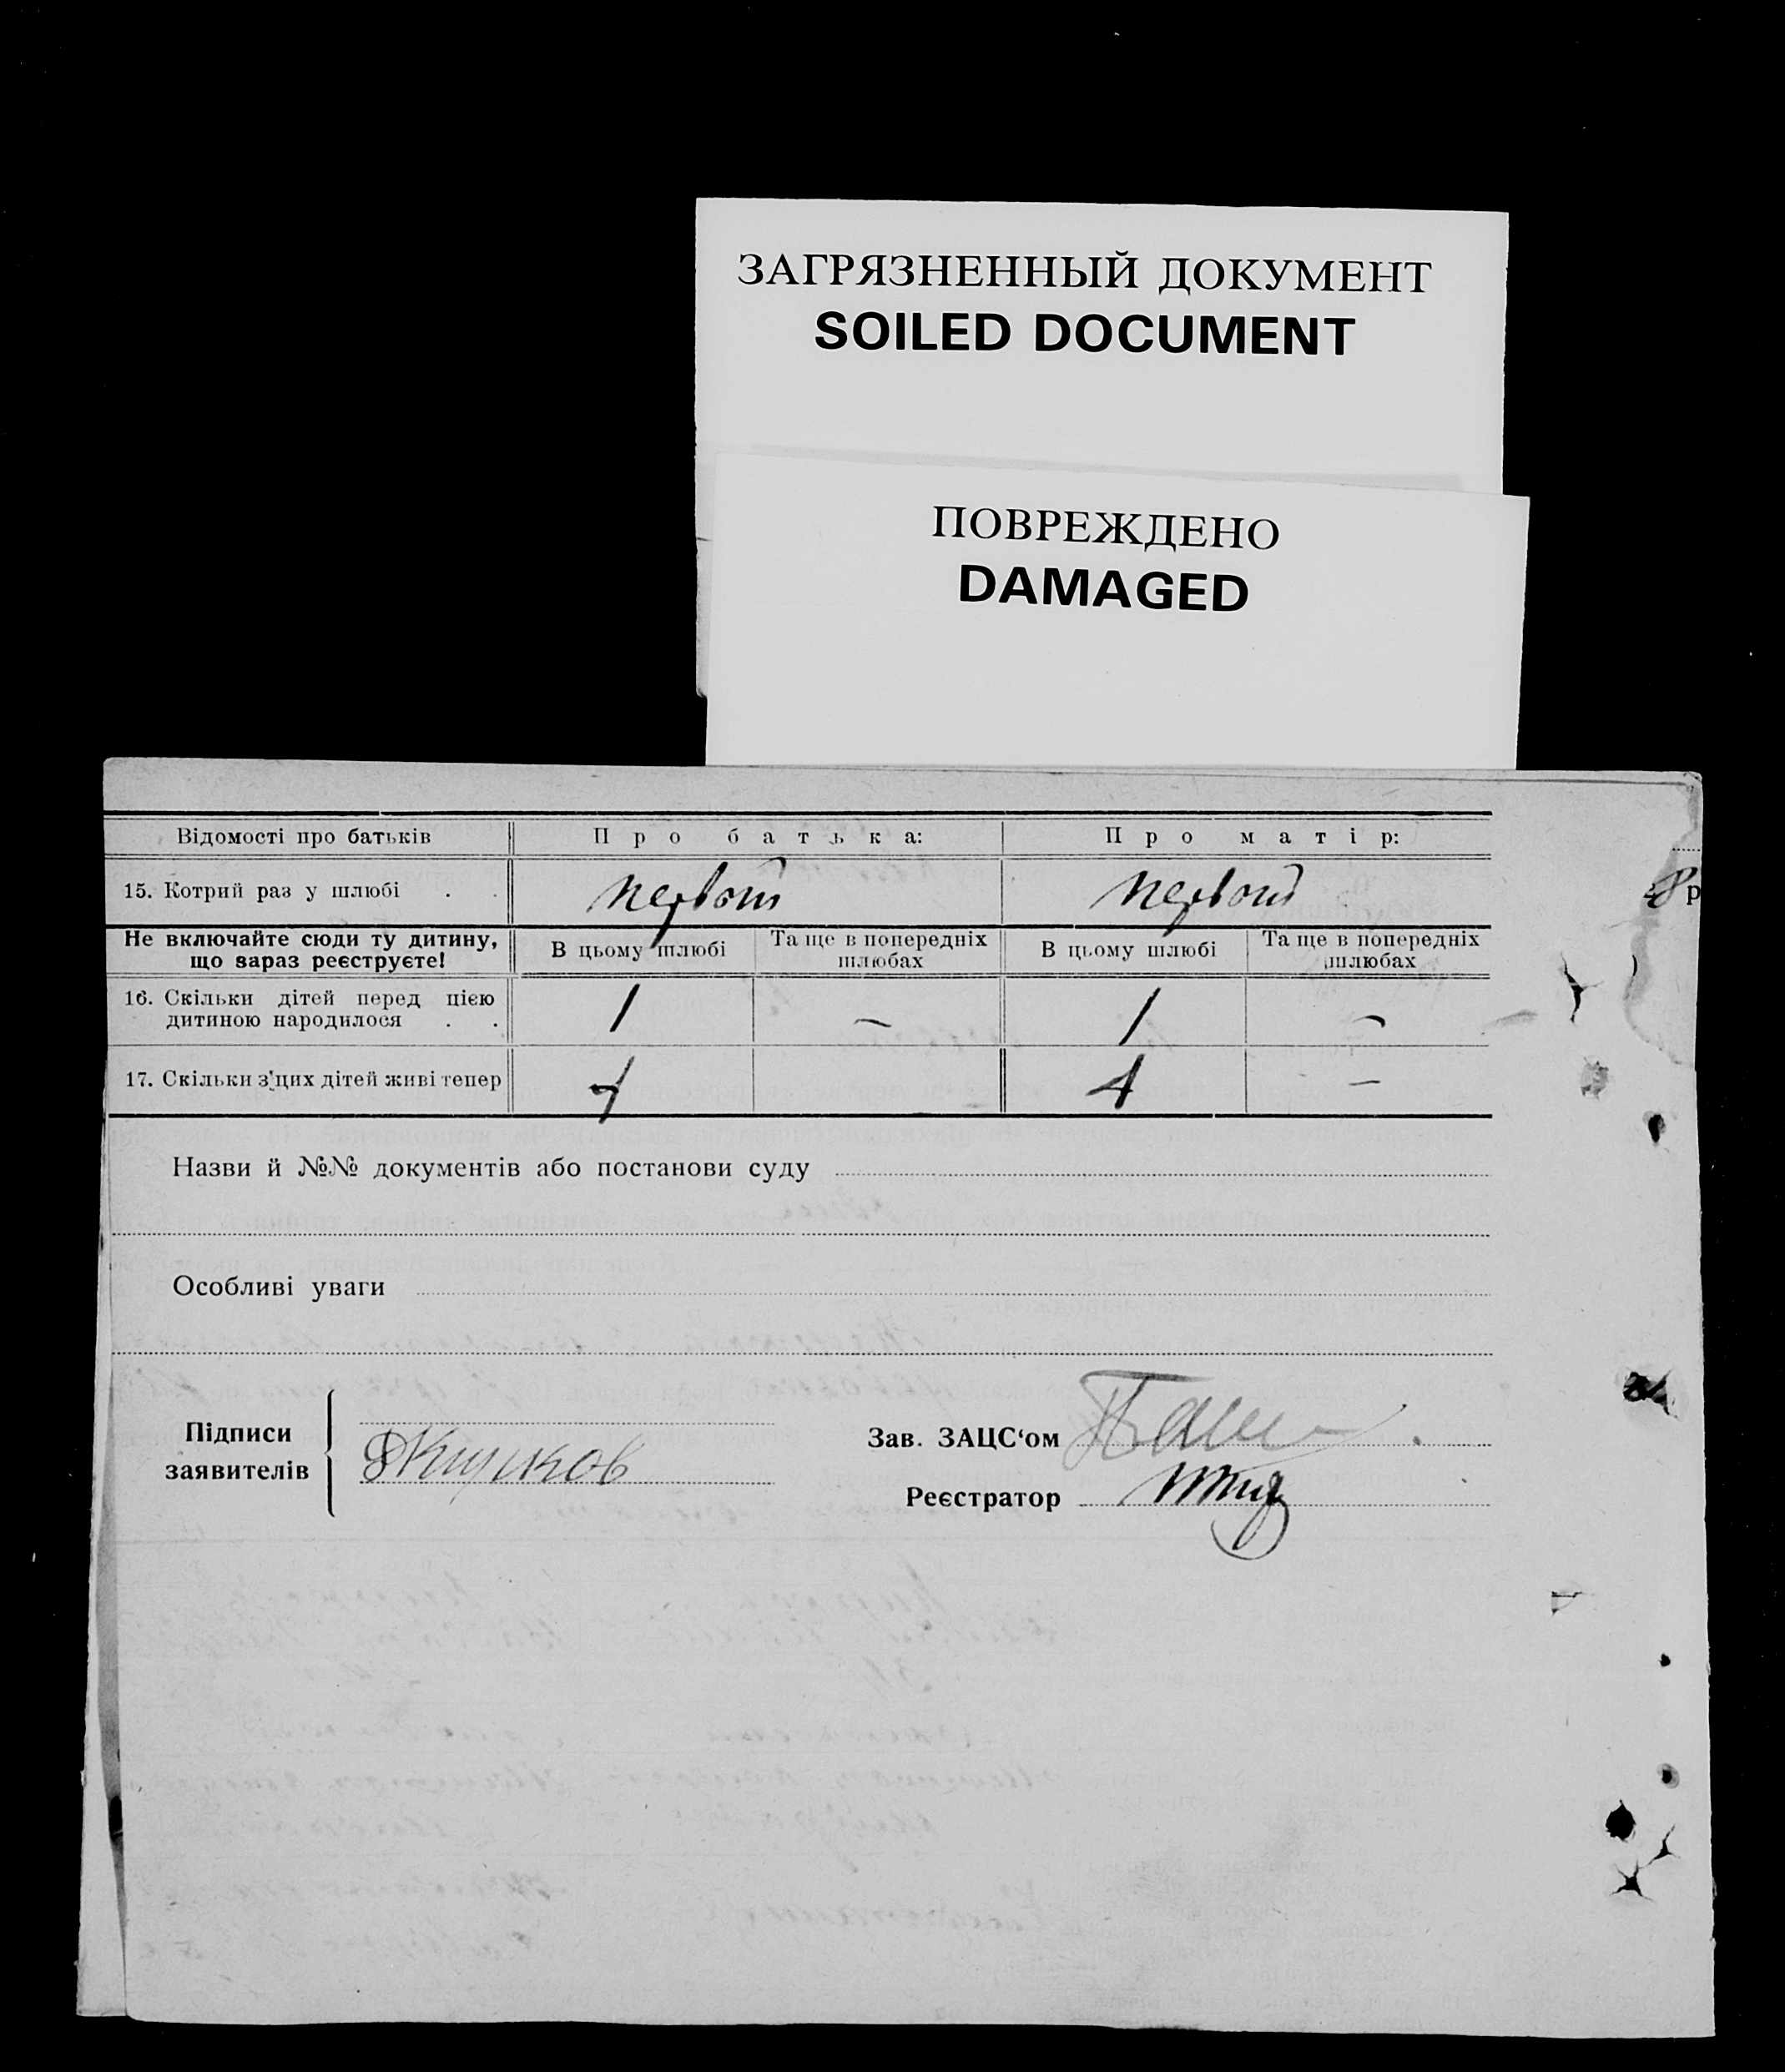 ЗАГРЯЗНЕННЫЙ ДОКУМЕНТ
SOILED DOCUMENT
ПОВРЕЖДЕНО
DAMAGED
Відомості про батьків Про батька: Про матір:
15. Котрий раз у шлюбі . . первый первый
8 р
Не включайте сюди ту дитину, що зараз реєструєте! В цьому шлюбі Та ще в попередніх шлюбах В цьому шлюбі Та ще в попередніх шлюбах
16. Скільки дітей перед цією дитиною народилося . . 1 — 1 —
17. Скільки з'цих дітей живі тепер —
Назви й №№ документів або постанови суду
Особливі уваги
Підписи заявителів
Зав. ЗАЦС‘ом
Реєстратор